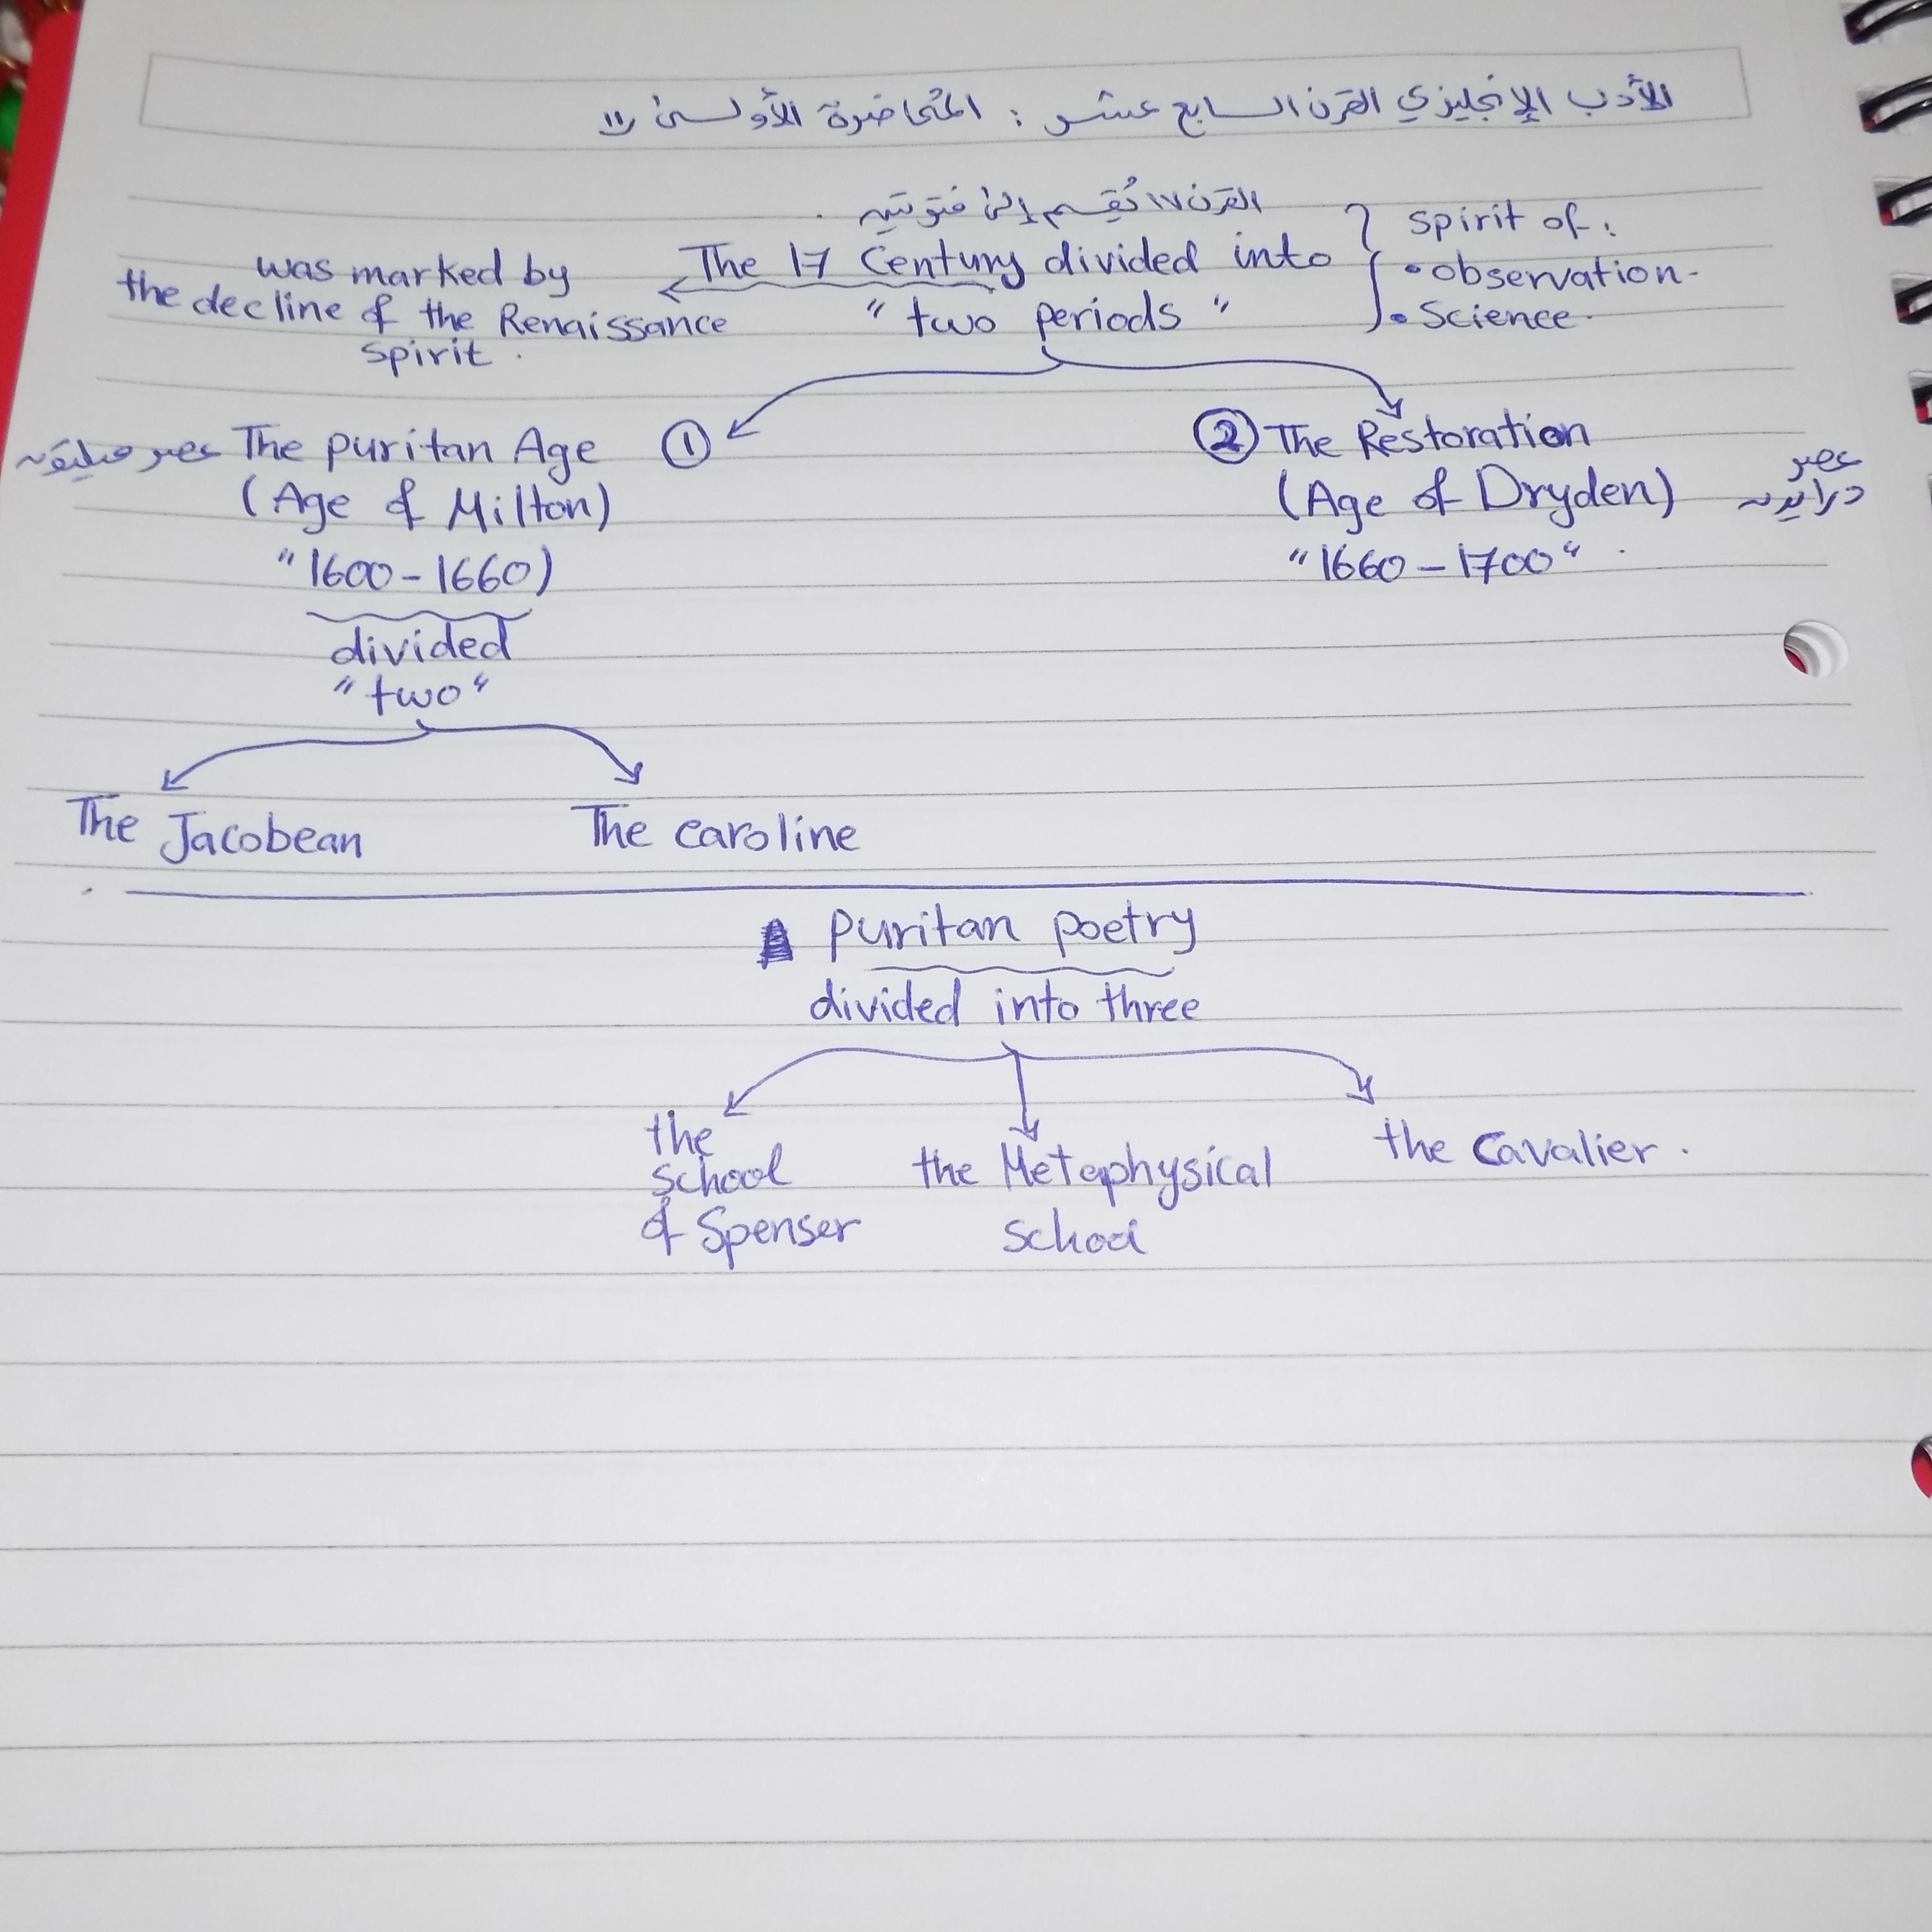 الأدب الإنجليزي القرن السابع عشر : المحاضرة الأولى
القرن ١٧ تُقسم إلى فترتين
The 17 Century divided into
" two periods "
spirit of :
• observation -
• Science.
was marked by
the decline of the Renaissance
spirit .
① The puritan Age
(Age of Milton)
"1600 - 1660)
divided
"two"
② The Restoration
(Age of Dryden)
عصر
درايدن
"1660 - 1700" .
The Jacobean
The caroline
puritan poetry
divided into three
the
school
of Spenser
the Metaphysical
school
the Cavalier .